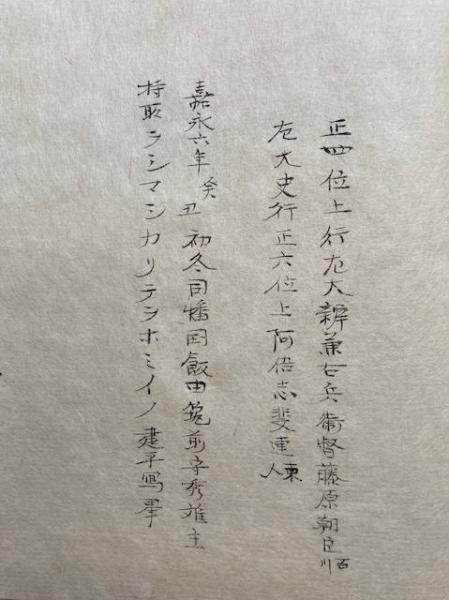 正四位上行左大辨兼右兵衛督藤原朝臣百川
左大史行正六位上阿倍志斐連東人
嘉永六年癸丑初冬因幡国飯田筑前守秀雄主
持取ラシマシカリテヲホミイノ建平冩畢